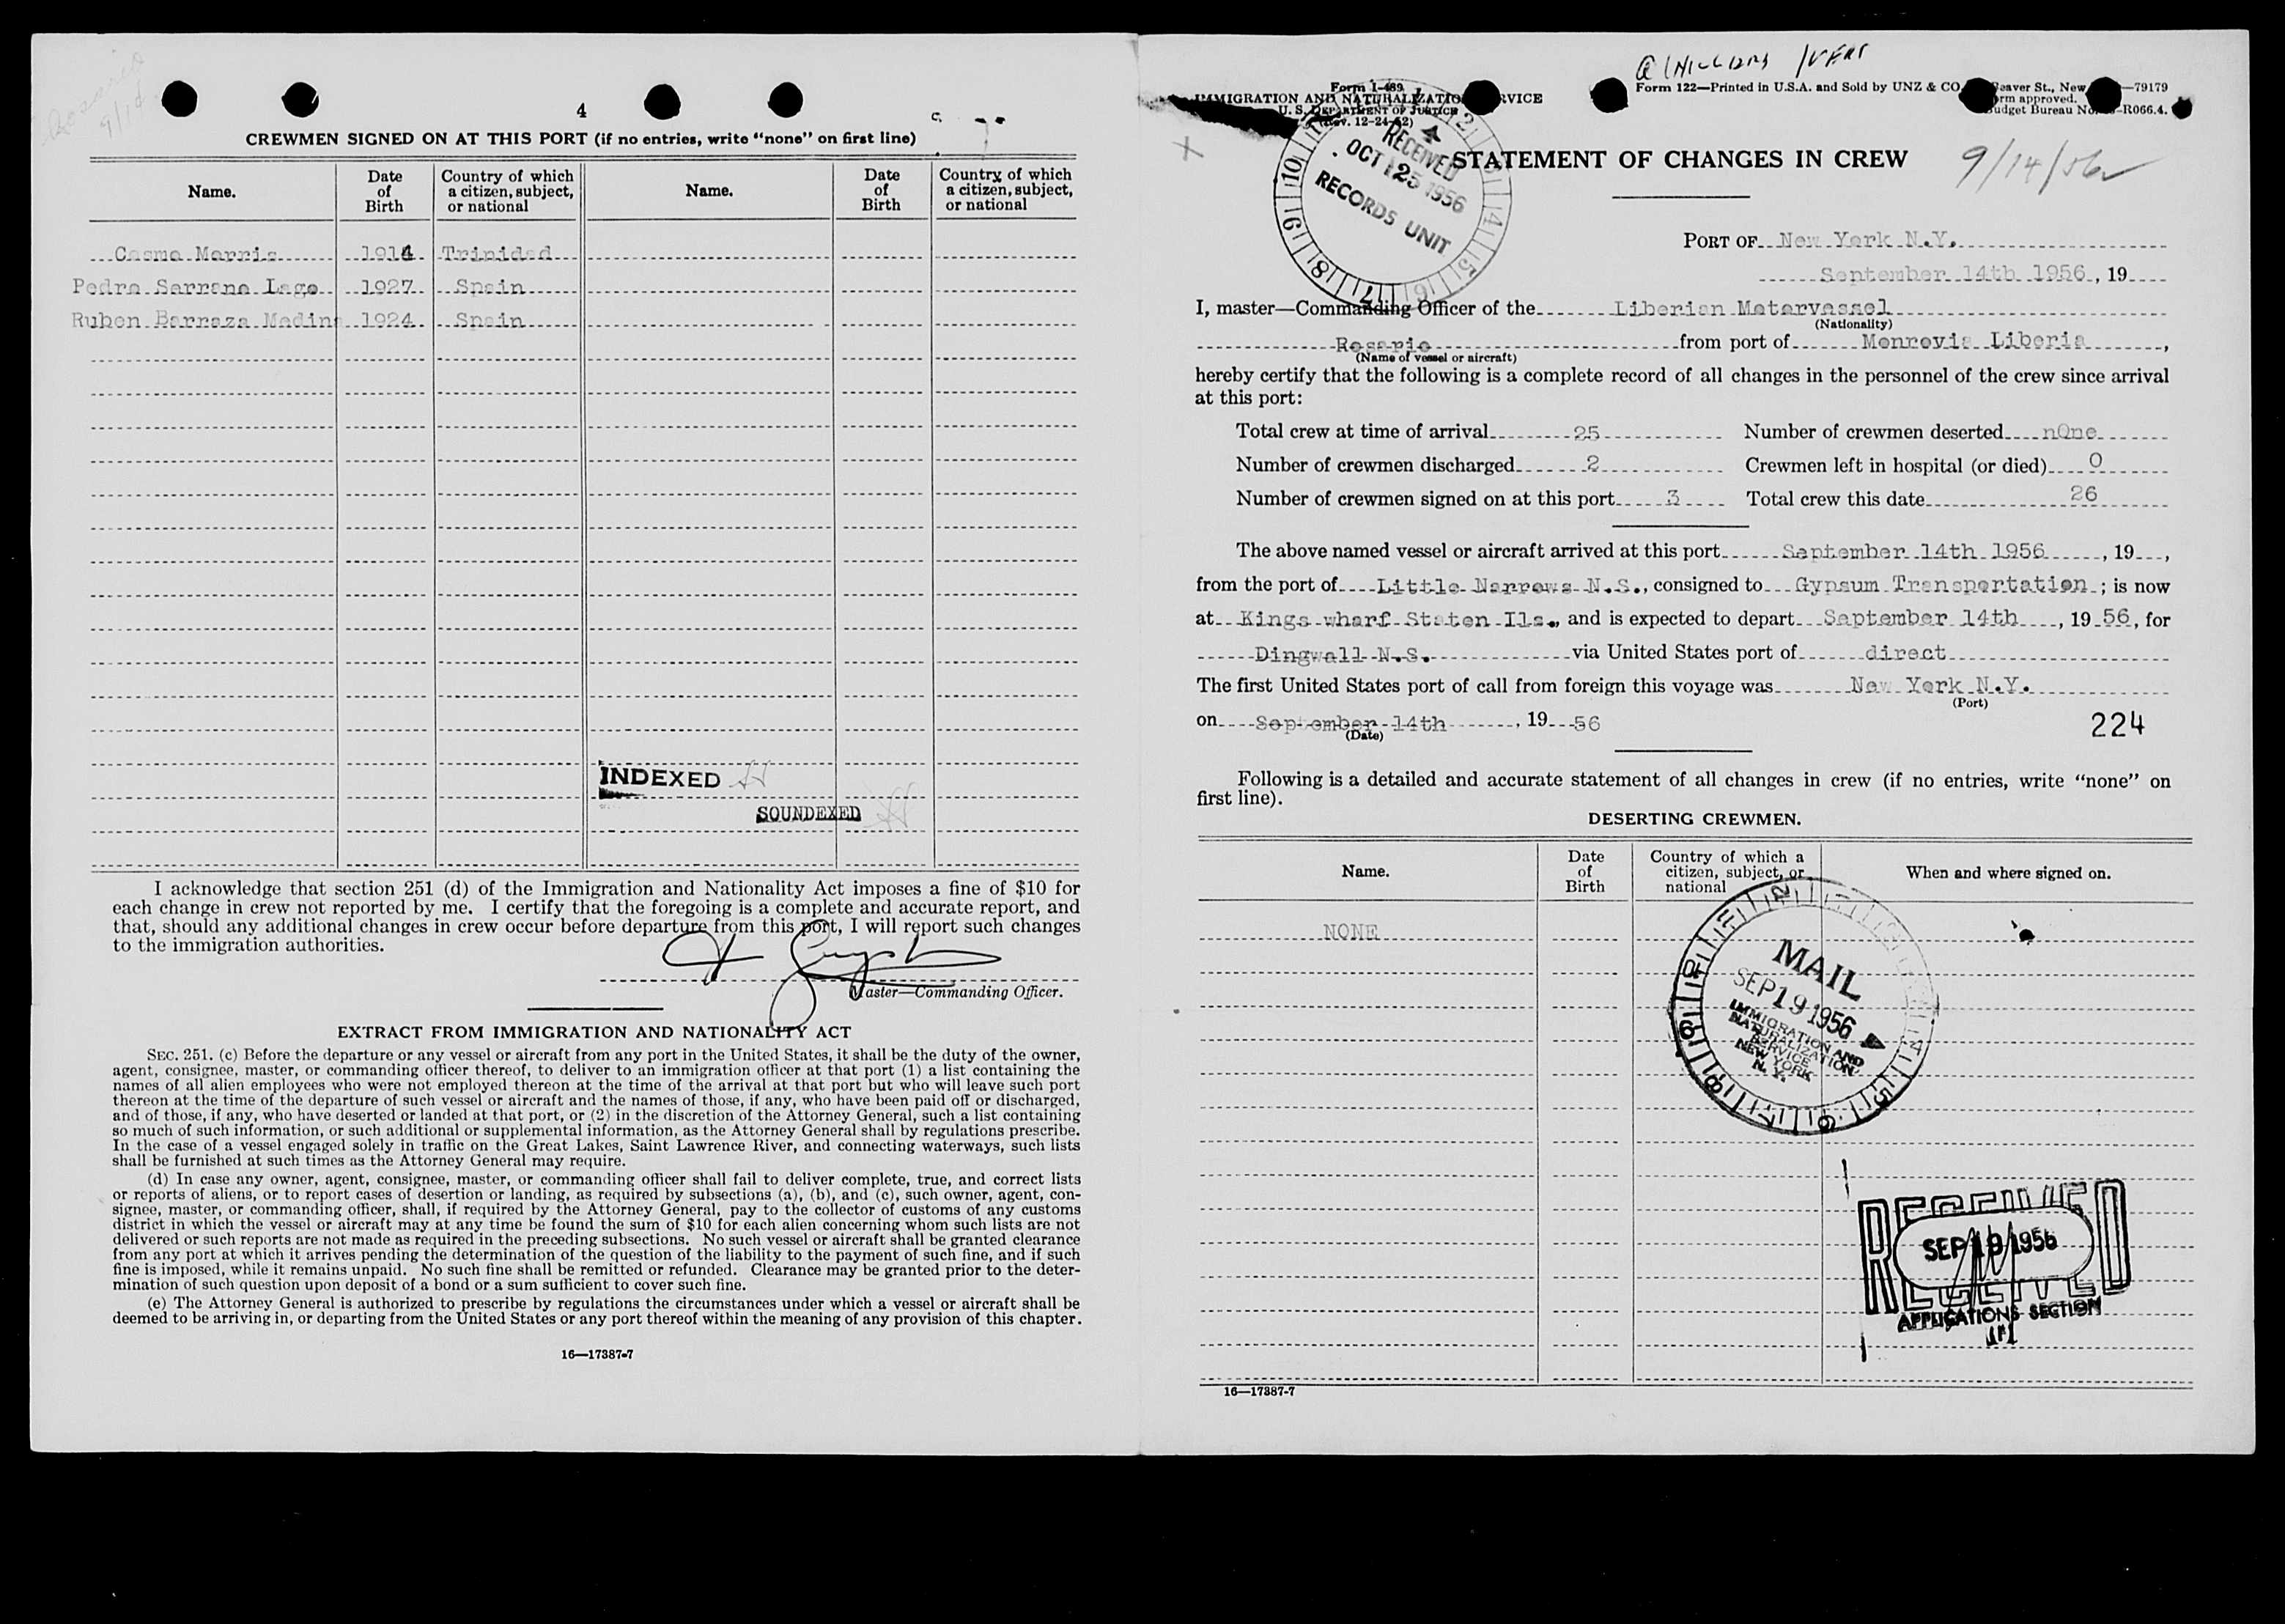 Rosario
9/14
4
CREWMEN SIGNED ON AT THIS PORT (if no entries, write “none” on first line)
Name. Date of Birth Country of which a citizen, subject, or national Name. Date of Birth Country of which a citizen, subject, or national
Cosme Morris 1914 Trinidad
Pedro Serrano Lago 1927 Spain
Ruben Barraza Medina 1924 Spain
INDEXED
SOUNDEXED
I acknowledge that section 251 (d) of the Immigration and Nationality Act imposes a fine of $10 for
each change in crew not reported by me. I certify that the foregoing is a complete and accurate report, and
that, should any additional changes in crew occur before departure from this port, I will report such changes
to the immigration authorities.
Master—Commanding Officer.
EXTRACT FROM IMMIGRATION AND NATIONALITY ACT
SEC. 251. (c) Before the departure or any vessel or aircraft from any port in the United States, it shall be the duty of the owner,
agent, consignee, master, or commanding officer thereof, to deliver to an immigration officer at that port (1) a list containing the
names of all alien employees who were not employed thereon at the time of the arrival at that port but who will leave such port
thereon at the time of the departure of such vessel or aircraft and the names of those, if any, who have been paid off or discharged,
and of those, if any, who have deserted or landed at that port, or (2) in the discretion of the Attorney General, such a list containing
so much of such information, or such additional or supplemental information, as the Attorney General shall by regulations prescribe.
In the case of a vessel engaged solely in traffic on the Great Lakes, Saint Lawrence River, and connecting waterways, such lists
shall be furnished at such times as the Attorney General may require.
(d) In case any owner, agent, consignee, master, or commanding officer shall fail to deliver complete, true, and correct lists
or reports of aliens, or to report cases of desertion or landing, as required by subsections (a), (b), and (c), such owner, agent, con-
signee, master, or commanding officer, shall, if required by the Attorney General, pay to the collector of customs of any customs
district in which the vessel or aircraft may at any time be found the sum of $10 for each alien concerning whom such lists are not
delivered or such reports are not made as required in the preceding subsections. No such vessel or aircraft shall be granted clearance
from any port at which it arrives pending the determination of the question of the liability to the payment of such fine, and if such
fine is imposed, while it remains unpaid. No such fine shall be remitted or refunded. Clearance may be granted prior to the deter-
mination of such question upon deposit of a bond or a sum sufficient to cover such fine.
(e) The Attorney General is authorized to prescribe by regulations the circumstances under which a vessel or aircraft shall be
deemed to be arriving in, or departing from the United States or any port thereof within the meaning of any provision of this chapter.
16—17387-7
Form I-489
IMMIGRATION AND NATURALIZATION SERVICE
U. S. DEPARTMENT OF JUSTICE
(Rev. 12-24-52)
Form 122—Printed in U.S.A. and Sold by UNZ & CO. Beaver St., New —79179
Form approved.
Budget Bureau No. -R066.4.
RECEIVED
OCT 25 1956
RECORDS UNIT
STATEMENT OF CHANGES IN CREW
9/14/56
PORT OF New York N.Y.
September 14th 1956, 19
I, master—Commanding Officer of the Liberian Motorvessel
(Nationality)
Rosario from port of Monrovia Liberia,
(Name of vessel or aircraft)
hereby certify that the following is a complete record of all changes in the personnel of the crew since arrival
at this port:
Total crew at time of arrival 25 Number of crewmen deserted nOne
Number of crewmen discharged 2 Crewmen left in hospital (or died) 0
Number of crewmen signed on at this port 3 Total crew this date 26
The above named vessel or aircraft arrived at this port September 14th 1956, 19,
from the port of Little Narrows N.S., consigned to Gypsum Transportation; is now
at Kings wharf Staten Ils., and is expected to depart September 14th, 19 56, for
Dingwall N.S. via United States port of direct
The first United States port of call from foreign this voyage was New York N.Y.
(Port)
on September 14th, 19 56
(Date)
224
Following is a detailed and accurate statement of all changes in crew (if no entries, write “none” on
first line).
DESERTING CREWMEN.
Name. Date of Birth Country of which a citizen, subject, or national When and where signed on.
NONE
MAIL
SEP 19 1956
IMMIGRATION AND
NATURALIZATION
SERVICE
NEW YORK
N. Y.
RECEIVED
SEP 19 1956
RECEIVED
APPLICATIONS SECTION
16—17387-7